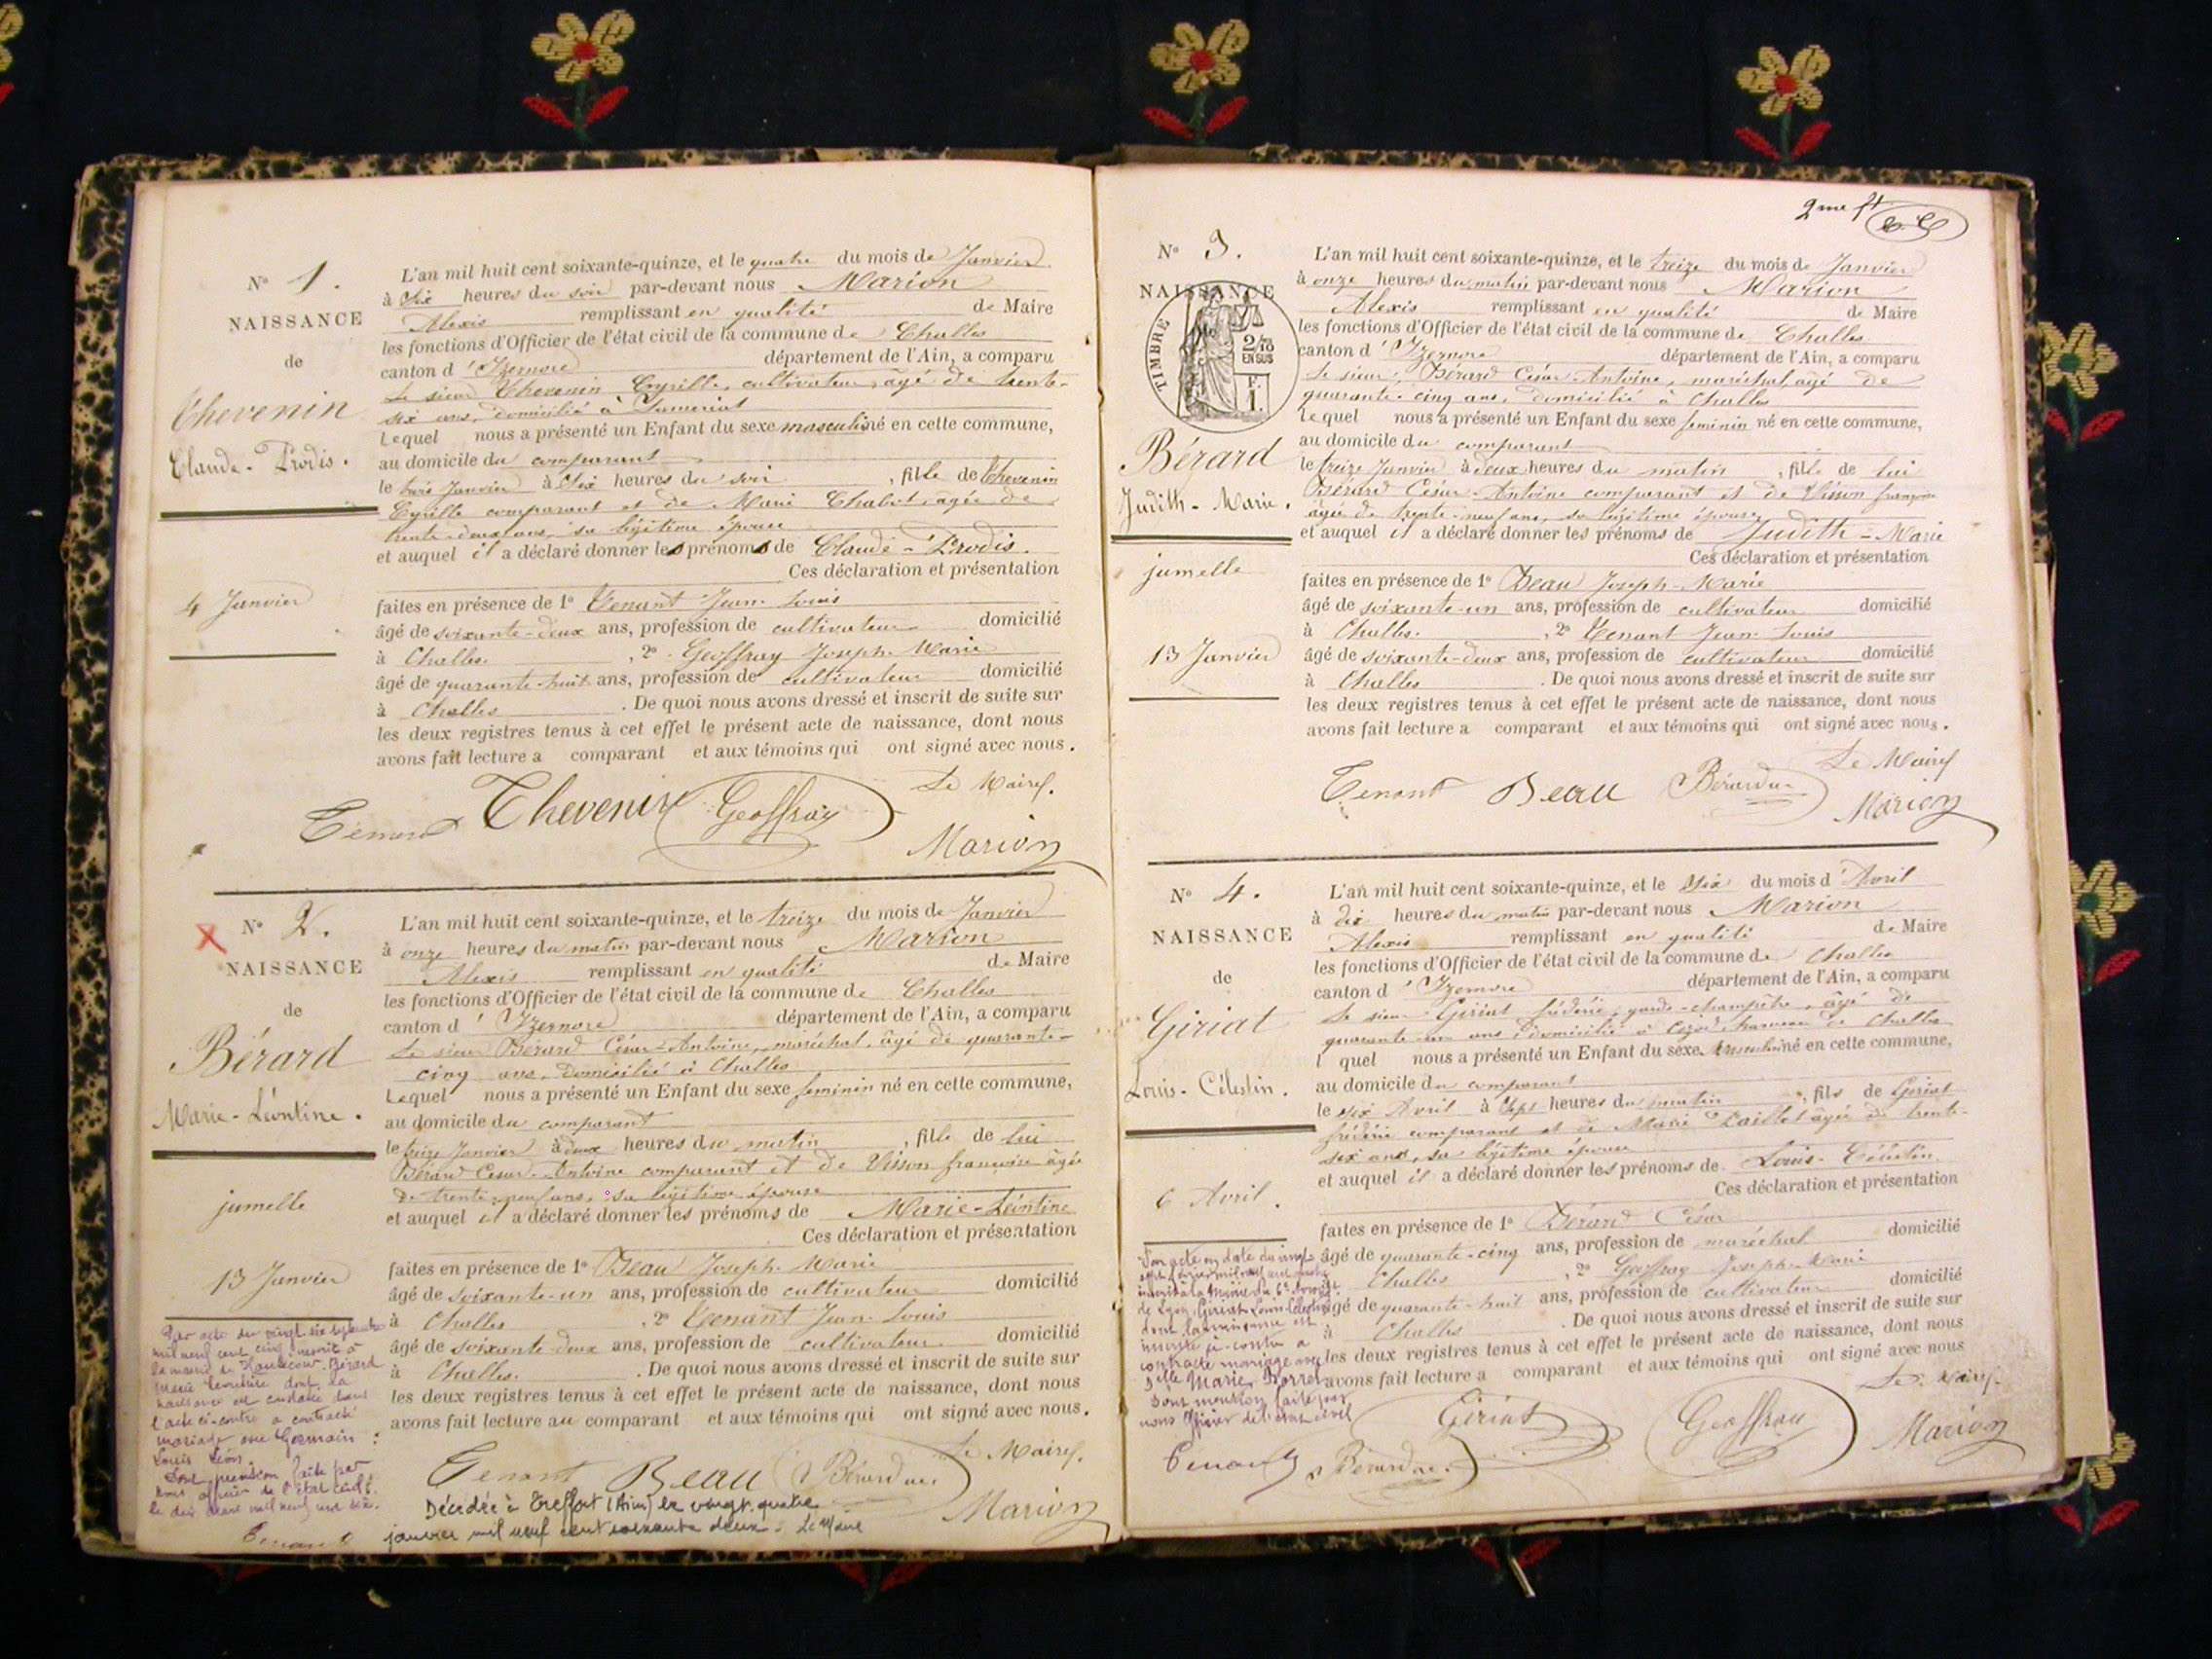 N° 1.
NAISSANCE
de
Thevenin
Claude-Prodis.
4 Janvier
L'an mil huit cent soixante-quinze, et le quatre du mois de Janvier
à six heures du soir par-devant nous Marion
Alexis remplissant en qualité de Maire
les fonctions d'Officier de l'état civil de la commune de Challes
canton d'Izernore département de l'Ain, a comparu
Le sieur Thevenin Cyrille, cultivateur, âgé de trente-
six ans, domicilié à
Lequel nous a présenté un Enfant du sexe masculin né en cette commune,
au domicile du comparant
le trois Janvier à six heures du soir, fils de Thevenin
Cyrille comparant et de Marie Chabot, agée de
trente-deux ans, sa légitime épouse
et auquel il a déclaré donner les prénoms de Claude-Prodis.
Ces déclaration et présentation
faites en présence de 1° Tenant Jean-Louis
âgé de soixante-deux ans, profession de cultivateur domicilié
à Challes, 2° Geoffray Joseph-Marie
âgé de quarante-huit ans, profession de cultivateur domicilié
à Challes. De quoi nous avons dressé et inscrit de suite sur
les deux registres tenus à cet effet le présent acte de naissance, dont nous
avons fait lecture a comparant et aux témoins qui ont signé avec nous.
Le Maire.
Tenant Thevenin Geoffray
Marion
N° 2.
NAISSANCE
de
Bérard
Marie-Léontine.
jumelle
13 Janvier
Par acte du vingt-six septembre
mil neuf cent cinq inscrit à
la mairie de Hautecour. Bérard
Marie Léontine dont la
naissance est constatée dans
l'acte ci-contre a contracté
mariage avec Germain
Louis Léon.
Dont mention faite par
nous officier de l'état civil
le dix mars mil neuf cent six.
Tenant
L'an mil huit cent soixante-quinze, et le treize du mois de Janvier
à onze heures du matin par-devant nous Marion
Alexis remplissant en qualité de Maire
les fonctions d'Officier de l'état civil de la commune de Challes
canton d'Izernore département de l'Ain, a comparu
Le sieur Bérard César-Antoine, maréchal, âgé de quarante-
cinq ans, domicilié à Challes
Lequel nous a présenté un Enfant du sexe feminin né en cette commune,
au domicile du comparant
le treize Janvier à deux heures du matin, fille de lui
Bérard César-Antoine comparant et de Visson françoise agée
de trente-neuf ans, sa légitime épouse
et auquel il a déclaré donner les prénoms de Marie-Léontine
Ces déclaration et présentation
faites en présence de 1° Beau Joseph-Marie
âgé de soixante-un ans, profession de cultivateur domicilié
à Challes, 2° Tenant Jean-Louis
âgé de soixante-deux ans, profession de cultivateur domicilié
à Challes. De quoi nous avons dressé et inscrit de suite sur
les deux registres tenus à cet effet le présent acte de naissance, dont nous
avons fait lecture au comparant et aux témoins qui ont signé avec nous.
Le Maire.
Tenant Beau Bérard
Marion
Décédée à Treffort (Ain) le vingt-quatre
janvier mil neuf cent soixante deux. Le Maire
2me ft
N° 3.
NAISSANCE
TIMBRE
2/10
EN SUS
F.
1.
Bérard
Judith-Marie.
jumelle
13 Janvier
L'an mil huit cent soixante-quinze, et le treize du mois de Janvier
à onze heures du matin par-devant nous Marion
Alexis remplissant en qualité de Maire
les fonctions d'Officier de l'état civil de la commune de Challes
canton d'Izernore département de l'Ain, a comparu
Le sieur Bérard César-Antoine, maréchal, âgé de
quarante-cinq ans, domicilié à Challes
Lequel nous a présenté un Enfant du sexe feminin né en cette commune,
au domicile du comparant
le treize Janvier à deux heures du matin, fille de lui
Bérard César-Antoine comparant et de Visson françoise
âgée de trente-neuf ans, sa légitime épouse
et auquel il a déclaré donner les prénoms de Judith-Marie
Ces déclaration et présentation
faites en présence de 1° Beau Joseph-Marie
âgé de soixante-un ans, profession de cultivateur domicilié
à Challes., 2° Tenant Jean-Louis
âgé de soixante-deux ans, profession de cultivateur domicilié
à Challes. De quoi nous avons dressé et inscrit de suite sur
les deux registres tenus à cet effet le présent acte de naissance, dont nous
avons fait lecture a comparant et aux témoins qui ont signé avec nous.
Le Maire
Tenant Beau Bérard
Marion
N° 4.
NAISSANCE
de
Giriat
Louis-Célestin.
6 Avril.
Son acte en date du vingt
inscrit à la Mairie du 6e Arrondt
de Lyon, Giriat Louis Célestin
dont la naissance est
inscrite ci-contre a
contracté mariage avec
Dlle Marie
Dont mention faite par
nous officier de l'état civil
Tenant
L'an mil huit cent soixante-quinze, et le six du mois d'Avril
à dix heures du matin par-devant nous Marion
Alexis remplissant en qualité de Maire
les fonctions d'Officier de l'état civil de la commune de Challes
canton d'Izernore département de l'Ain, a comparu
Le sieur Giriat frédéric, garde-champêtre, âgé de
quarante-un ans, domicilié à hameau de Challes
l quel nous a présenté un Enfant du sexe masculin né en cette commune,
au domicile du comparant
le six Avril à sept heures du matin, fils de Giriat
frédéric comparant et de Marie agée de trente-
six ans, sa légitime épouse
et auquel il a déclaré donner les prénoms de Louis-Célestin
Ces déclaration et présentation
faites en présence de 1° Bérard César
âgé de quarante-cinq ans, profession de maréchal domicilié
à Challes, 2° Geoffray Joseph-Marie
âgé de quarante-huit ans, profession de cultivateur domicilié
à Challes. De quoi nous avons dressé et inscrit de suite sur
les deux registres tenus à cet effet le présent acte de naissance, dont nous
avons fait lecture a comparant et aux témoins qui ont signé avec nous
Le Maire.
Bérard Giriat Geoffray Marion